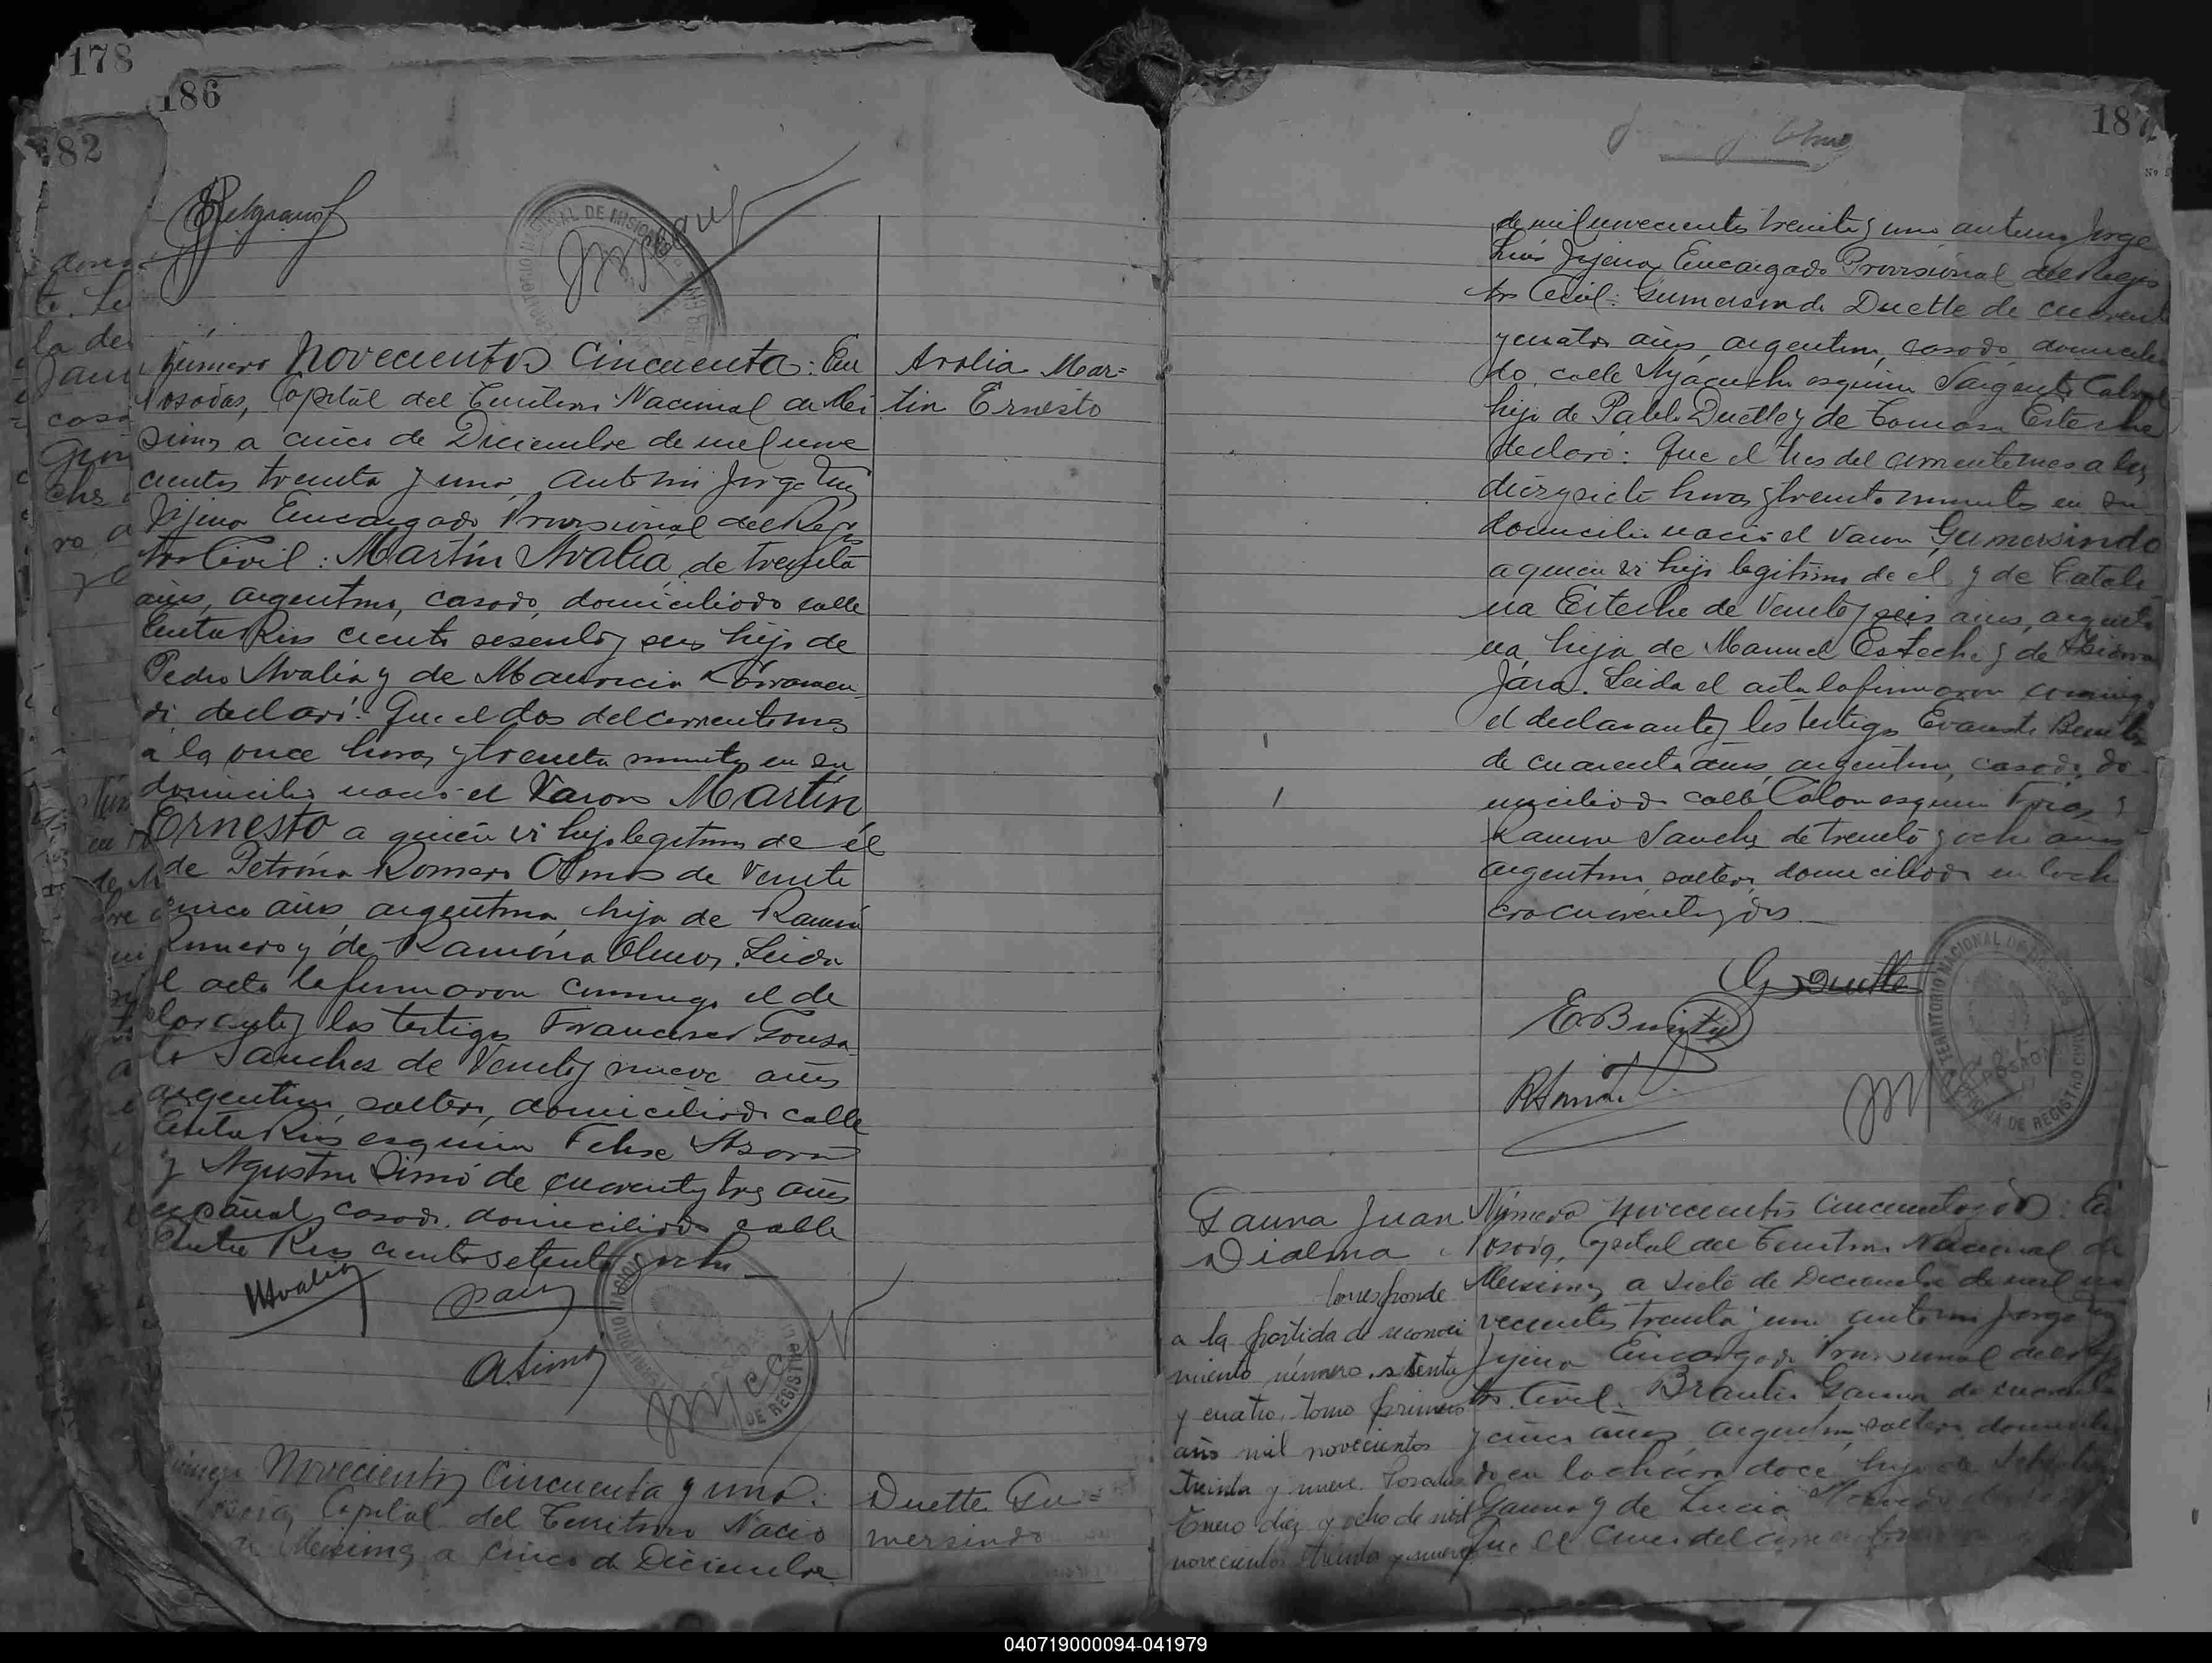 178
186
82
Belgrano
Número Novecientos Cincuenta: En
Posadas, Capital del Territorio Nacional de Mi
siones a cinco de Diciembre de mil nove
cientos treinta y uno, ante mi Jorge Luis
Jijena Encargado Provisional del Regis
tro Civil: Martín Avalia, de treinta
años, argentino, casado, domiciliado calle
Entre Rios ciento sesenta y seis hijo de
Pedro Avalia y de Mauricia Larramen
di declaró: Que el dos del corriente mes
a la once horas y treinta minutos en su
domicilio nació el Varon Martín
Ernesto a quién vi hijo legitimo de él
de Petrona Romero Olmos de Veinte
cinco años, argentina, hija de Ramón
Romero y de Ramona Olmos. Leida
el acta la firmaron conmigo el de
clarante y los testigos Francisco Gonza
lo Sanchez de Veinte y nueve años
argentino, soltero, domiciliado calle
Entre Rios esquina Felix Azara
y Agustin Simó de cuarenta y tres años
español, casado, domiciliado calle
Entre Rios ciento setenta y ocho.
Avalia Mar=
tin Ernesto
MAvalia
A. Simó
TERRITORIO NACIONAL DE MISIONES
Número Novecientos Cincuenta y uno:
Posadas, Capital del Territorio Nacio
de Misiones a cinco de Diciembre
Duette Gu=
mersindo
187
de mil novecientos treinta y uno ante mi Jorge
Luis Jijena Encargado Provisional del Regis
tro Civil: Gumersindo Duette de cuarenta
y cuatro años, argentino, casado, domicilia
do, calle Ayacucho esquina Sargento Cabral
hijo de Pablo Duette y de Tomasa Esteche
declaró: Que el tres del corriente mes a las
diez y siete horas y treinta minutos en su
domicilio nació el Varon Gumersindo
a quien vi hijo legitimo de él y de Catali
na Esteche de Veinte y seis años, argenti
na, hija de Manuel Esteche y de
Jara. Leida el acta la firmaron conmigo
el declarante y los testigos Evaristo Benitez
de cuarenta años, argentino, casado, do-
miciliado calle Colon esquina Frias y
Ramon Sanchez de treinta y ocho años
argentino, soltero, domiciliado en la cha
cra cuarenta y dos.
G Duette
E Benitez
TERRITORIO NACIONAL DE MISIONES
POSADAS
OFICINA DE REGISTRO CIVIL
Gauna Juan
Dialma
Corresponde
a la partida de reconoci
miento número setenta
y cuatro, tomo primero
año mil novecientos
treinta y nueve. Posadas
Enero diez y ocho de mil
novecientos treinta y nueve
Número novecientos cincuenta y dos: En
Posadas, Capital del Territorio Nacional de
Misiones, a siete de Diciembre de mil no
vecientos treinta y uno ante mi Jorge Luis
Jijena Encargado Provisional del Regis
tro Civil. Braulio Gauna de cuarenta
y cinco años, argentino, soltero, domicilia
do en la chacra doce, hijo de
Gauna y de Lucia
Que el cinco del corriente
040719000094-041979